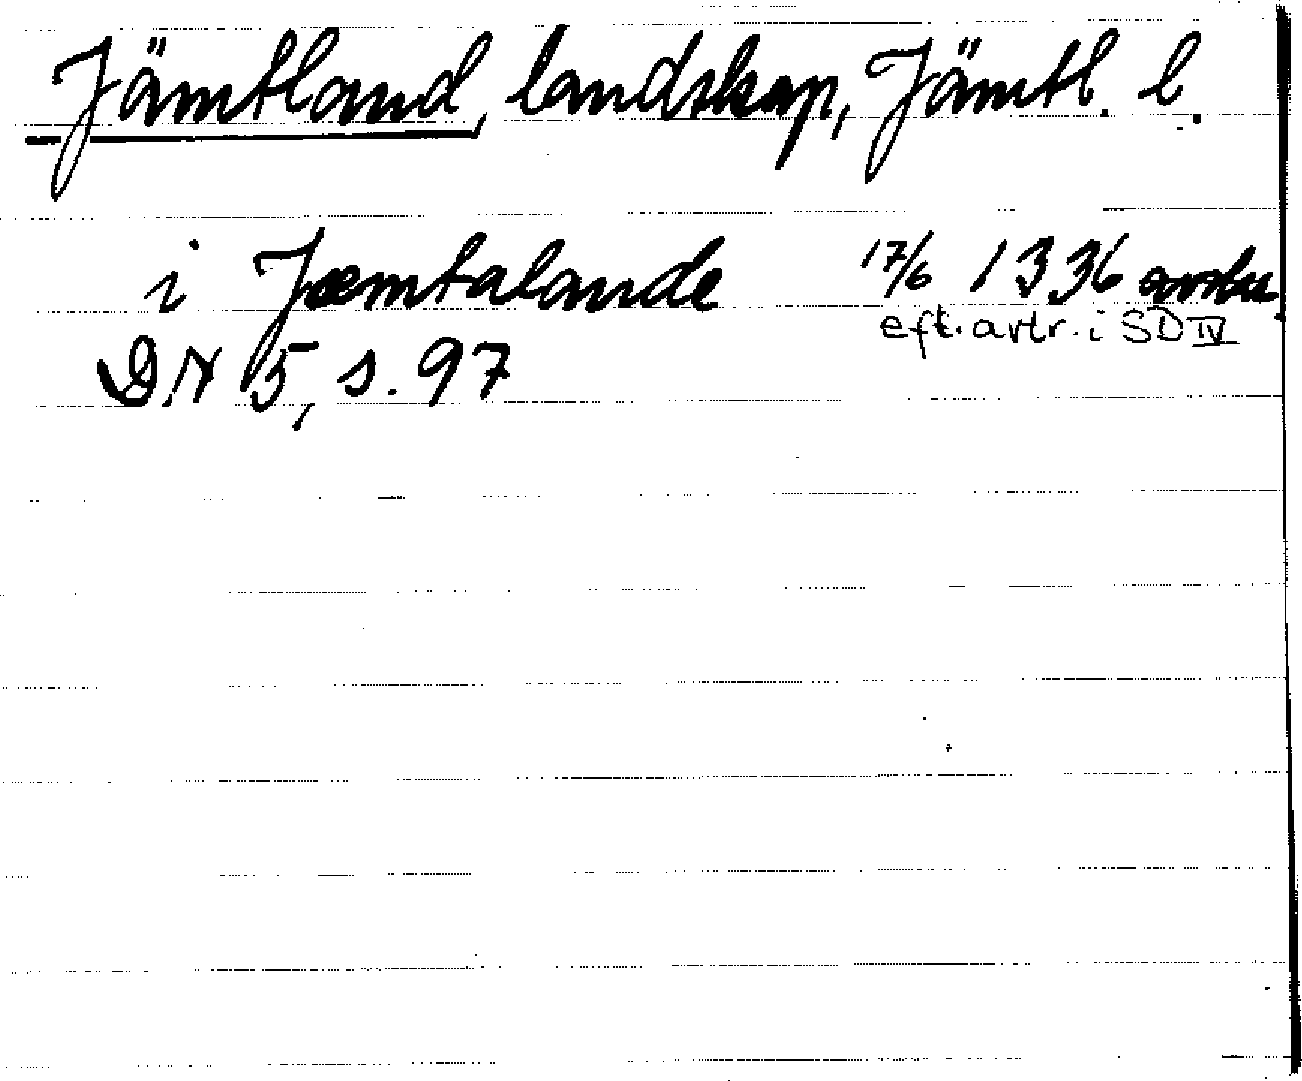 Jämtland, landskap, Jämtl. l.
i Jæmtalande 17/6 1336
eft. avtr. i SD IV
DN 5, s. 97